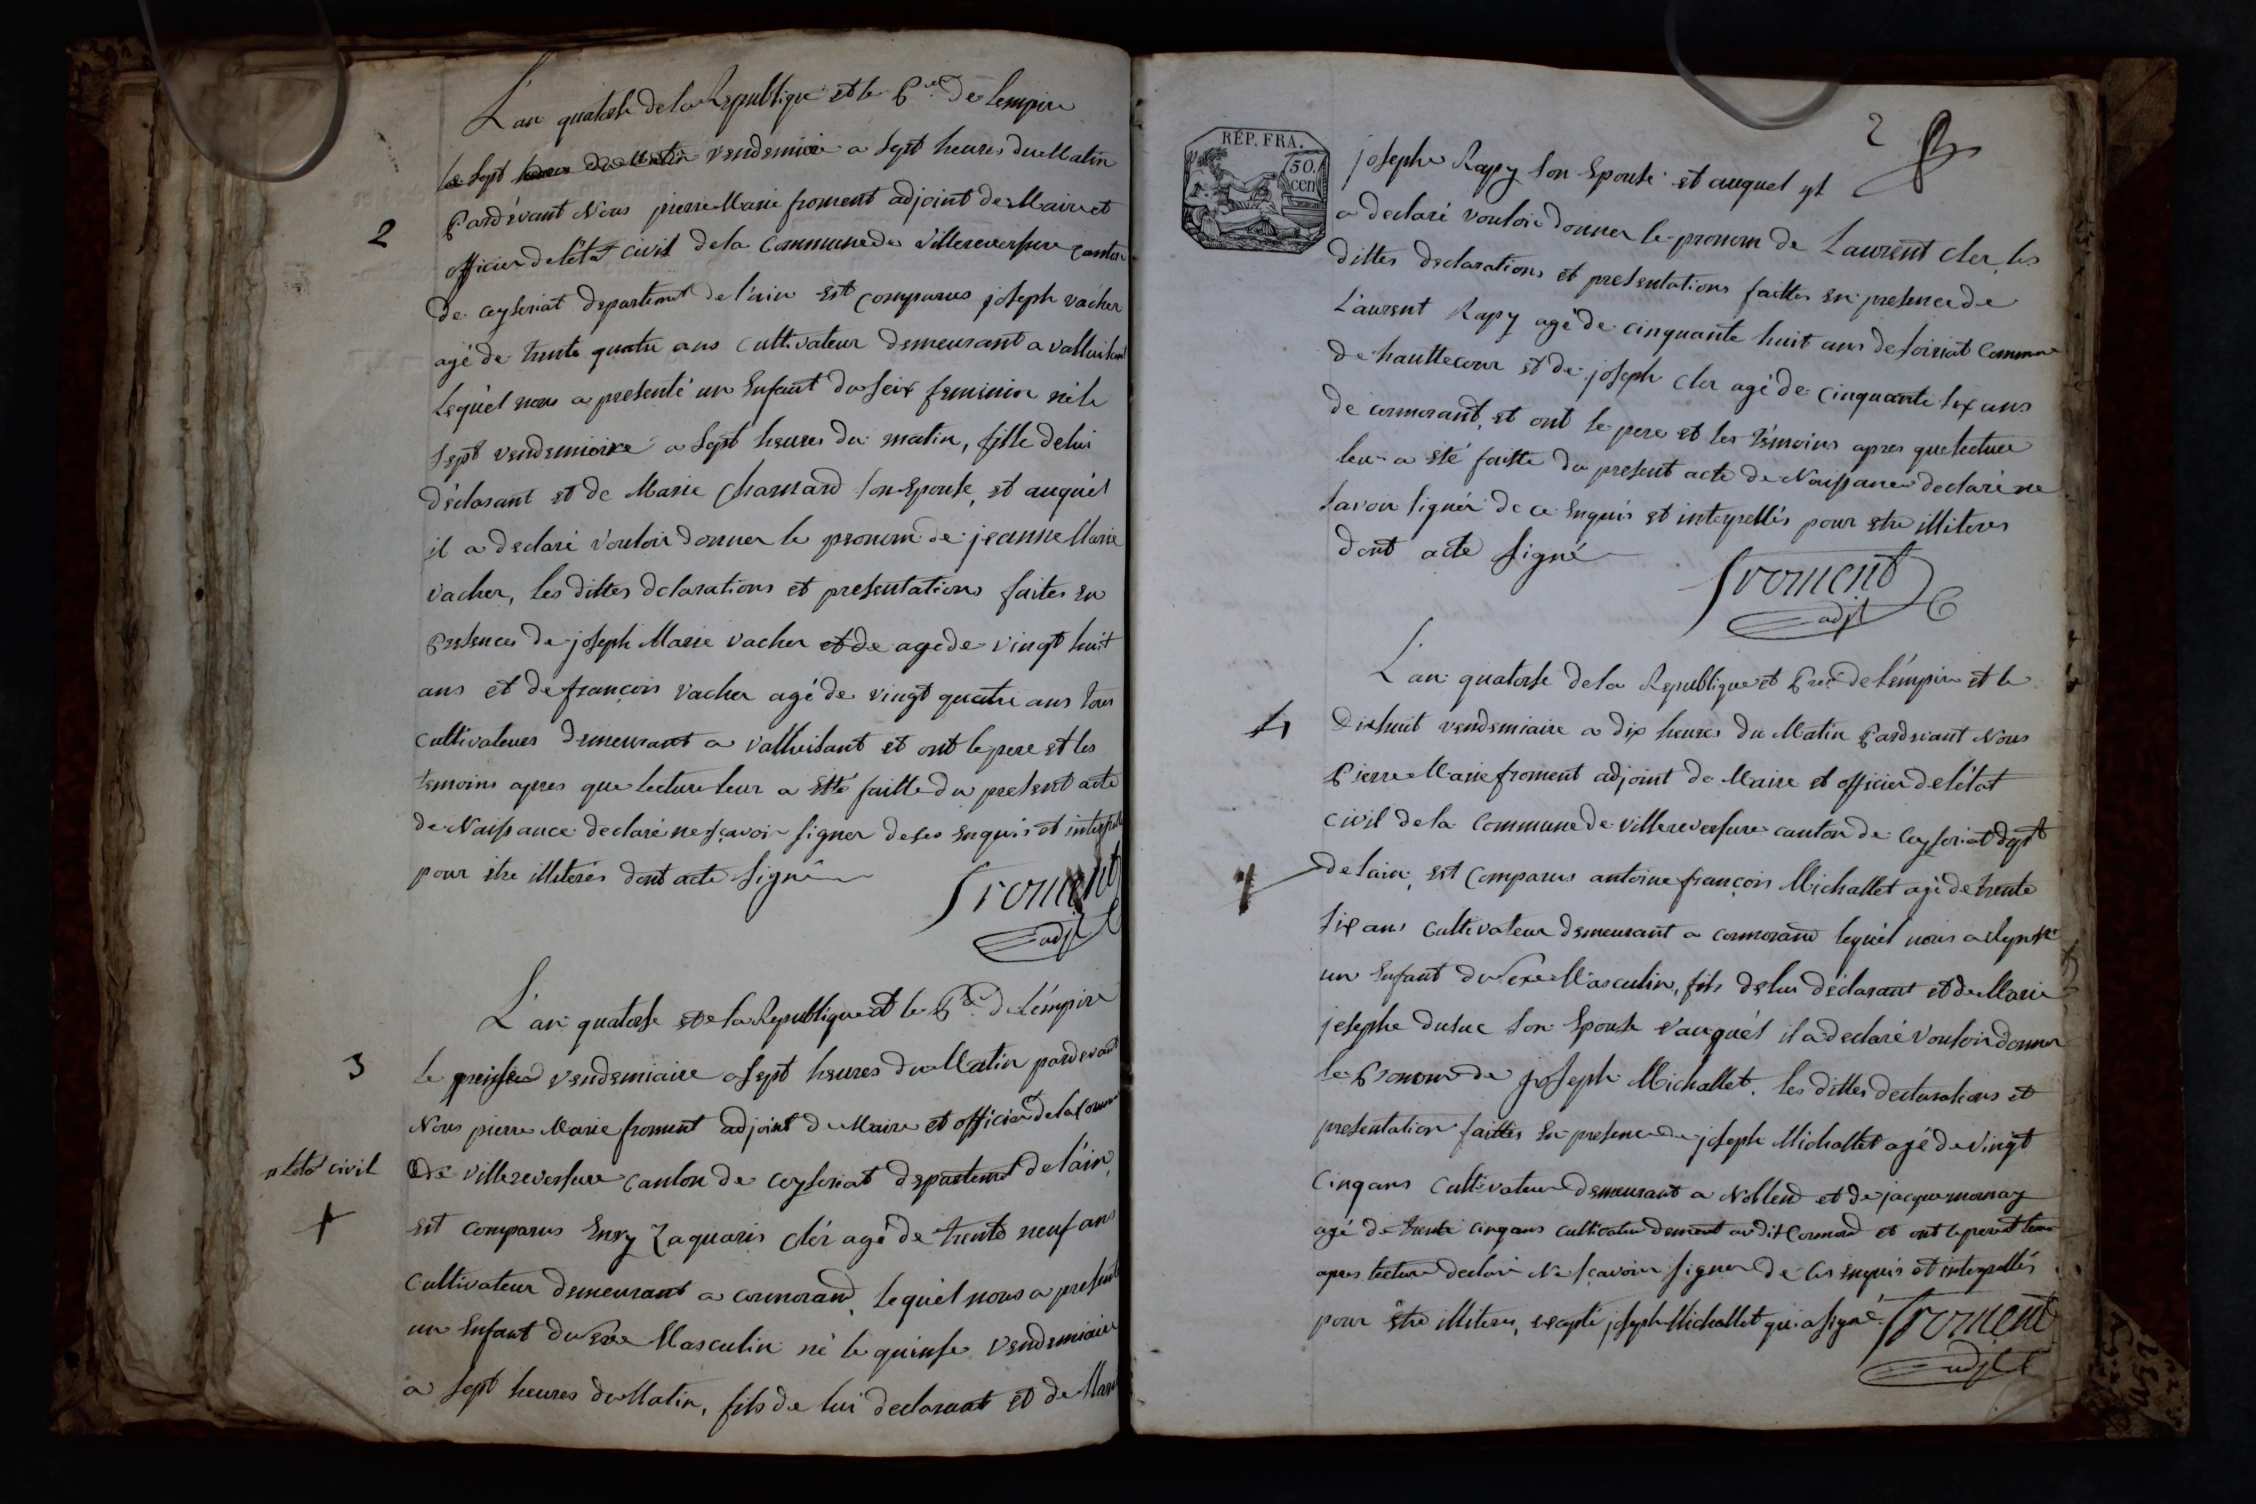 L'an quatorse de la Republique et le P.er de lempire
le sept heures du Matin vendemiaire a sept heures du Matin
2
Pardevant Nous pierre Marie froment adjoint de Maire et
officier de létat civil de la Commune de Villereversure canton
de ceyseriat departement de l'ain est comparus joseph vacher
agé de trente quatre ans cultivateur demeurant a
Lequel nous a presenté un Enfant du seix feminin né le
sept vendemiaire a sept heures du matin, fille de lui
déclarant et de Marie Charnard son Epouse, et auquel
il a declaré vouloir donner le pronom de jeanne Marie
vacher, les dittes declarations et presentations faites en
Presences de joseph Marie vacher et de age de vingt huit
ans et de françois vacher agé de vingt quatre ans tous
cultivateurs demeurant a et ont le pere et les
temoins apres que lecture leur a eté faitte du present acte
de Naissance declaré ne sçavoir signer de ce enquis et
pour etre illiterés dont acte signé
froment
adjt
L'an quatorse de la Republique et le P.er de L'émpire
3
le vendemiaire a sept heures du Matin pardevant
Nous pierre Marie froment adjoint du Maire et officier de la Commune
létat civil
De villereversure canton de ceyseriat departement de l'ain,
est comparus Enry Zaquaris clér agé de trente neuf ans
cultivateur demeurant a cormorand, lequél nous a presenté
un Enfant du sexe Masculin né le quinse vendemiaire
a sept heures du Matin, fils de lui declarant et de Marie
2
RÉP. FRA.
50.
cen
josephe Rapy son Epouse et auquel yl
a declaré vouloir donner le pronom de Laurent cler, les
dittes declarations et presentations faittes en presence de
Laurent Rapy agé de cinquante huit ans de soiriat Commune
de hauttecour et de joseph cler agé de cinquante six ans
de cormorant, et ont le pere et les témoins apres que lecture
leur a été faitte du present acte de Naissance declaré ne
savoir signér de ce enquis et interpellés pour etre illiteres
dont acte signé
froment
adjt
L'an quatorse de la Republique et Pre.r de lémpire et le
4
Dixhuit vendemiaire a dix heures du Matin Pardevant Nous
Pierre Marie froment adjoint de Maire et officier de létat
civil de la Commune de villereversure canton de Ceyseriat dept
de lain, est Comparus antoine françois Michallet agé de trente
six ans Cultivateur demeurant a cormorand lequél nous a
un Enfant du sexe Masculin, fils de lui déclarant et de Marie
josephe dusuc son Epouse auquél il a declaré vouloir donner
le Pronom de joseph Michallet. les dittes declarations et
presentation faittes en presence de joseph Michallet agé de vingt
cinq ans Cultivateur demeurant a Noblend et de jacque mornay
agé de trente cinq ans cultivateur demeurt au dit Cormord et ont le pere et temo
apres lecture declaré Ne sçavoir signer de ces enquis et interpellés
pour être illiteres, excepté joseph Michallet qui a signé. froment
adjt